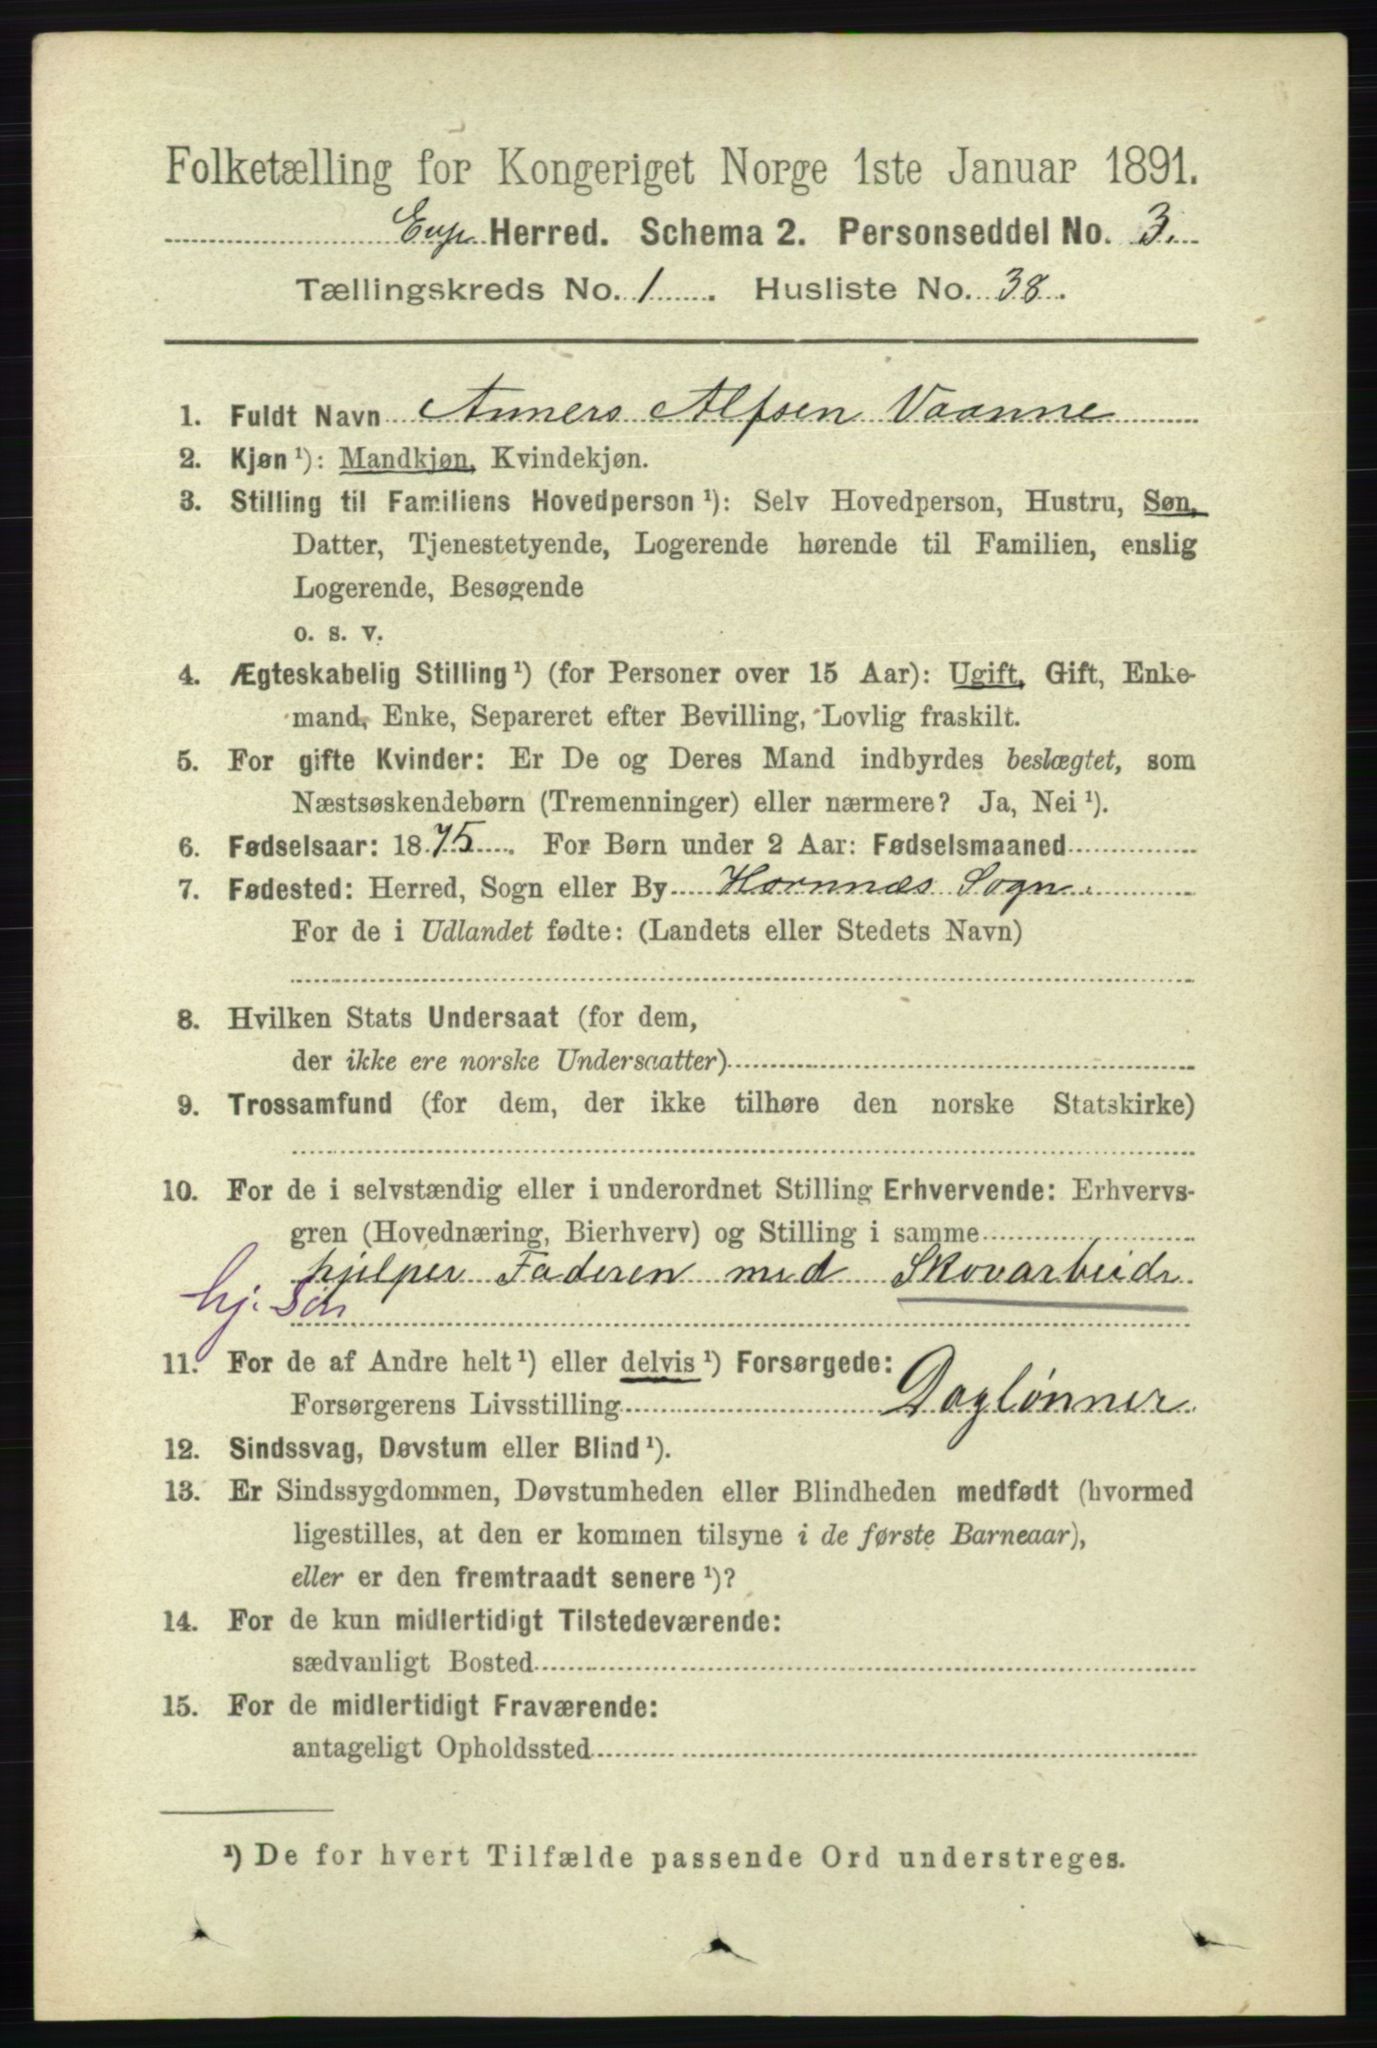 Folketælling for Kongeriget Norge 1ste Januar 1891.
Evje Herred. Schema 2. Personseddel No. 3.
Tællingskreds No. 1. Husliste No. 38.
1. Fuldt Navn Anners Alfsen Vaanne
2. Kjøn ¹): Mandkjøn, Kvindekjøn.
3. Stilling til Familiens Hovedperson ¹): Selv Hovedperson, Hustru, Søn,
Datter, Tjenestetyende, Logerende hørende til Familien, enslig
Logerende, Besøgende
o. s. v.
4. Ægteskabelig Stilling ¹) (for Personer over 15 Aar): Ugift, Gift, Enke-
mand, Enke, Separeret efter Bevilling, Lovlig fraskilt.
5. For gifte Kvinder: Er De og Deres Mand indbyrdes beslægtet, som
Næstsøskendebørn (Tremenninger) eller nærmere? Ja, Nei ¹).
6. Fødselsaar: 1875. For Børn under 2 Aar: Fødselsmaaned
7. Fødested: Herred, Sogn eller By Hornnæs Sogn.
For de i Udlandet fødte: (Landets eller Stedets Navn)
8. Hvilken Stats Undersaat (for dem,
der ikke ere norske Undersaatter)
9. Trossamfund (for dem, der ikke tilhøre den norske Statskirke)
10. For de i selvstændig eller i underordnet Stilling Erhvervende: Erhvervs-
gren (Hovednæring, Bierhverv) og Stilling i samme
hjelper Faderen med Skovarbeide
hj. Søn
11. For de af Andre helt ¹) eller delvis ¹) Forsørgede:
Forsørgerens Livsstilling Daglønner
12. Sindssvag, Døvstum eller Blind ¹).
13. Er Sindssygdommen, Døvstumheden eller Blindheden medfødt (hvormed
ligestilles, at den er kommen tilsyne i de første Barneaar),
eller er den fremtraadt senere ¹)?
14. For de kun midlertidigt Tilstedeværende:
sædvanligt Bosted
15. For de midlertidigt Fraværende:
antageligt Opholdssted
¹) De for hvert Tilfælde passende Ord understreges.